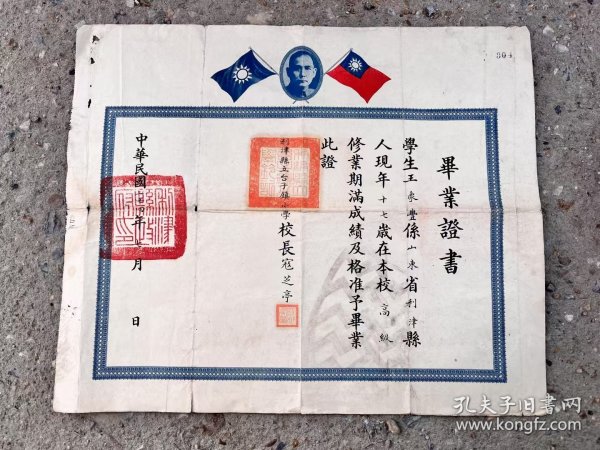 804
畢業證書
學生王象豐係山東省利津縣
人現年十七歲在本校高級
修業期滿成績及格准予畢業
此證
利津縣立台子鎮小學校長寇芝亭
中華民國年月日
孔夫子旧书网
www.kongfz.com